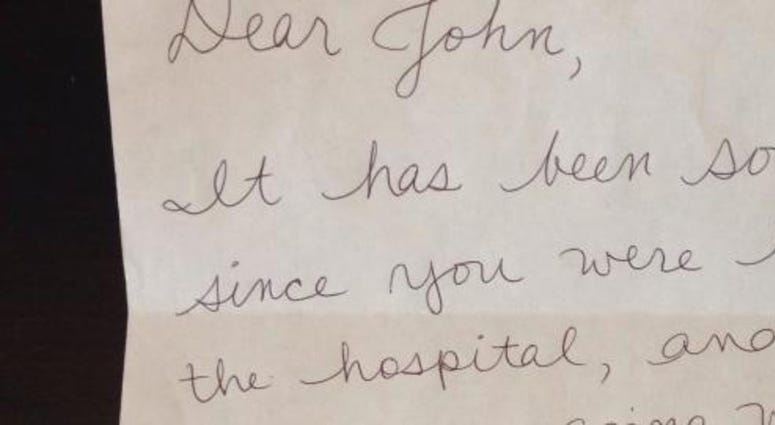 Dear John,
It has been so
since you were
the hospital, and
going